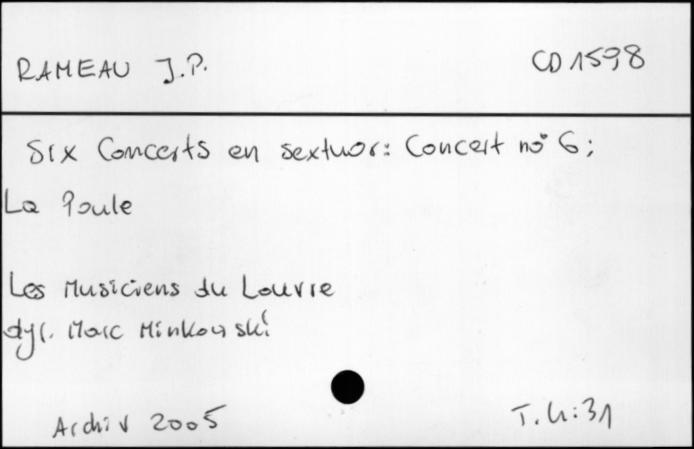 RAMEAU J.P.
CD 1598
Six Concerts en sextuor: Concert no 6;
La Poule
Les Musiciens du Louvre
dyr. Marc Minkowski
Archiv 2005
T. 4:31